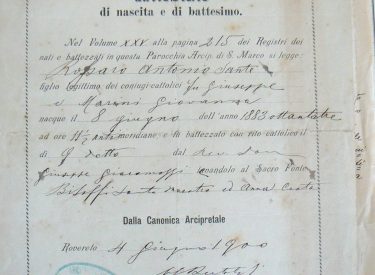 di nascita e di battesimo.
Nel Volume XXV alla pagina 215 dei Registri dei
nati e battezzati in questa Parocchia Arcip. di S. Marco si legge:
Antonio Sante
figlio legittimo dei conjugi cattolici fu Giuseppe
e Maroni Giovanna
nacque il 8 giugno dell'anno 1883 ottantatre
ad ore 11½ ante meridiane, e fu battezzato con rito cattolico il
dì 9 detto dal rev. don
Giuseppe levandolo al Sacro Fonte
Sante maestro ed Anna
Dalla Canonica Arcipretale
Rovereto 4 Giugno 1900